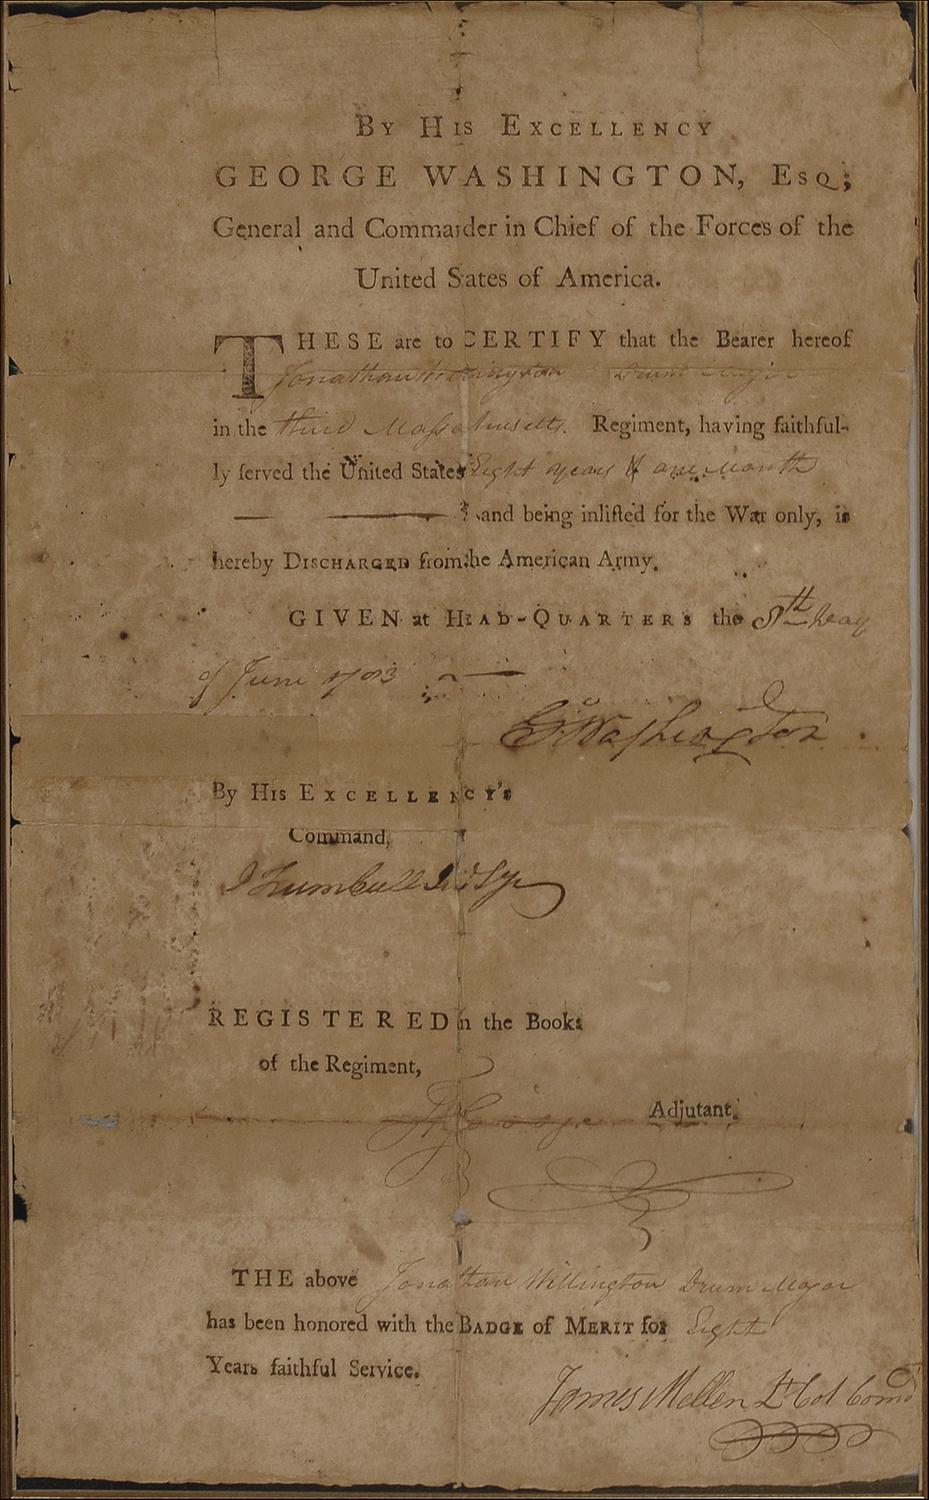 By His Excellency
GEORGE WASHINGTON, Esq;
General and Commander in Chief of the Forces of the
United States of America.
THESE are to CERTIFY that the Bearer hereof
Jonathan Willington Drum Major
in the third Massachusetts Regiment, having faithful-
ly served the United States Eight years & one Month
and being inlisted for the War only, is
hereby Discharged from the American Army.
GIVEN at Head-Quarters the 8th day
of June 1783
Go Washington
By His Excellency's
Command,
J Trumbull Jun Secy
REGISTERED in the Books
of the Regiment,
Adjutant.
THE above Jonathan Willington Drum Major
has been honored with the Badge of Merit for Eight
Years faithful Service.
James Mellen Lt Col Comd